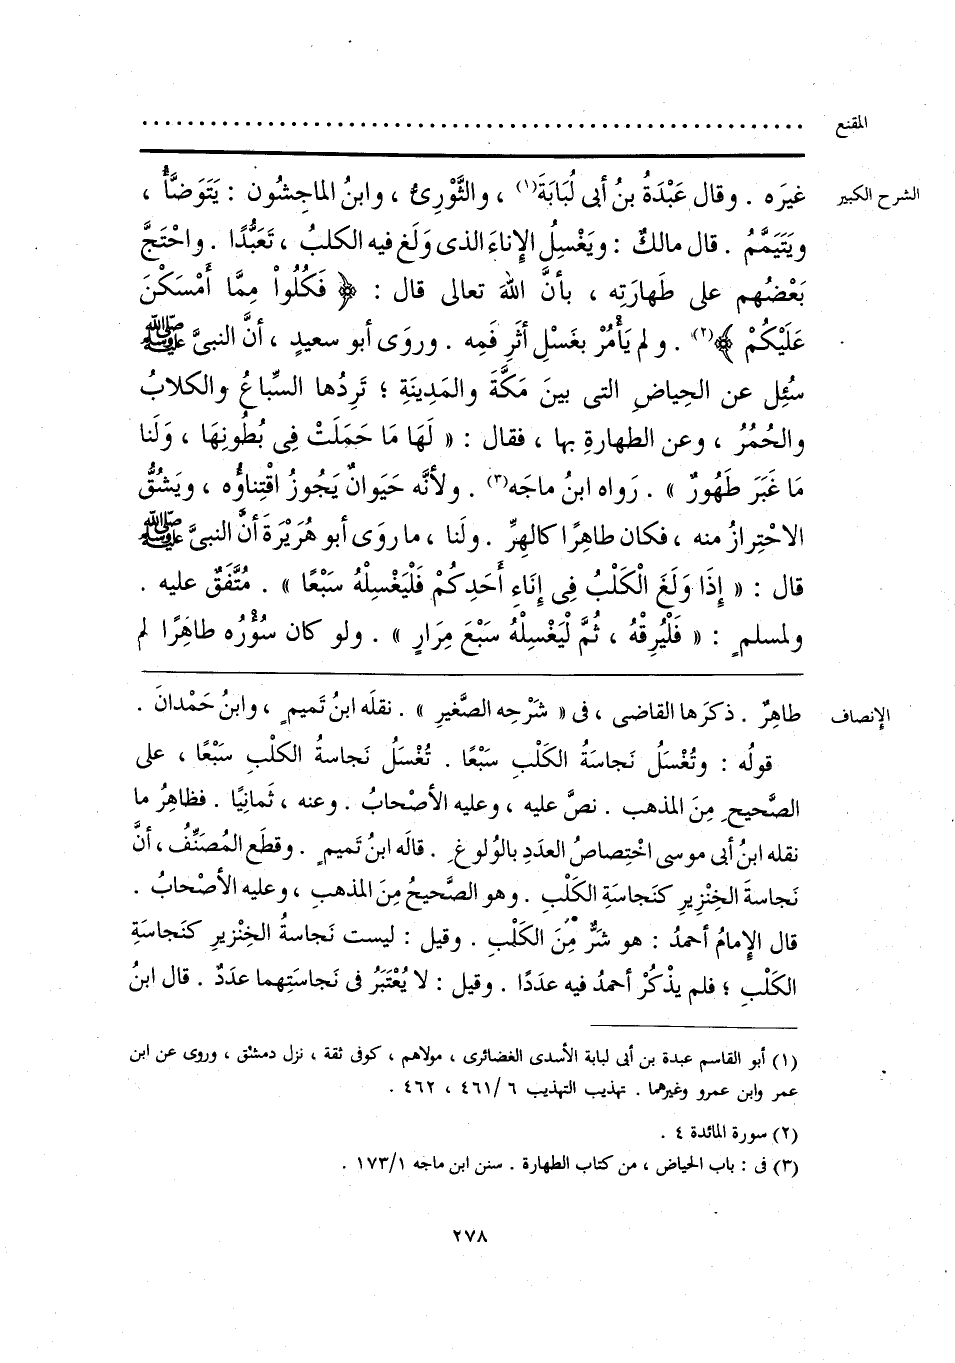 المقنع ............................................................
الشرح الكبير غيرَه . وقال عَبْدَةُ بنُ أبى لُبَابَةَ(١) ، والثَّوْرِىُّ ، وابنُ الماجِشُون : يَتَوَضَّأُ ،
ويَتَيَمَّمُ . قال مالكٌ : ويَغْسِلُ الإِناءَ الذى وَلَغ فيه الكلبُ ، تَعَبُّدًا . واحْتَجَّ
بَعْضُهم على طَهارَتِه ، بأنَّ اللهَ تعالى قال : ﴿ فَكُلُواْ مِمَّا أَمْسَكْنَ
عَلَيْكُمْ ﴾(٢) . ولم يَأْمُرْ بغَسْلِ أثَرِ فَمِه . وروَى أبو سعيدٍ ، أنَّ النبىَّ ﷺ
سُئِل عن الحِياضِ التى بينَ مَكَّةَ والمَدِينَةِ ؛ تَرِدُها السِّباعُ والكلابُ
والحُمُرُ ، وعن الطهارةِ بها ، فقال : « لَهَا مَا حَمَلَتْ فِى بُطُونِهَا ، وَلَنا
مَا غَبَرَ طَهُورٌ » . رَواه ابنُ ماجَه(٣) . ولأنَّه حَيَوانٌ يَجُوزُ اقْتِناؤُه ، ويَشُقُّ
الاحْتِرازُ منه ، فكان طاهِرًا كالهِرِّ . ولَنا ، ما روَى أبو هُرَيْرَةَ أنَّ النبىَّ ﷺ
قال : « إِذَا وَلَغَ الْكَلْبُ فِى إِنَاءِ أَحَدِكُمْ فَلْيَغْسِلْهُ سَبْعًا » . مُتَّفَقٌ عليه .
ولمسلمٍ : « فَلْيُرِقْهُ ، ثُمَّ لْيَغْسِلْهُ سَبْعَ مِرَارٍ » . ولو كان سُؤْرُه طاهِرًا لم
الإنصاف طاهِرٌ . ذكَرَها القاضى ، فى « شَرْحِه الصَّغيرِ » . نقلَه ابنُ تَميمٍ ، وابنُ حَمْدانَ .
قولُه : وتُغْسَلُ نَجاسَةُ الكَلْبِ سَبْعًا . تُغْسَلُ نَجاسةُ الكلْبِ سَبْعًا ، على
الصَّحيحِ مِنَ المذهبِ . نصَّ عليه ، وعليه الأصْحابُ . وعنه ، ثَمانِيًا . فظاهِرُ ما
نقله ابنُ أبى موسى اخْتِصاصُ العدَدِ بالوُلوغِ . قالَه ابنُ تَميمٍ . وقطَع المُصَنِّفُ ، أنَّ
نَجاسةَ الخِنْزِيرِ كنَجاسَةِ الكَلْبِ . وهو الصَّحيحُ مِنَ المذهبِ ، وعليه الأصْحابُ .
قال الإِمامُ أحمدُ : هو شَرٌّ مِنَ الكَلْبِ . وقيل : ليست نَجاسةُ الخِنْزيرِ كنَجاسَةِ
الكَلْبِ ؛ فلم يذْكُرْ أحمدُ فيه عدَدًا . وقيل : لا يُعْتَبَرُ فى نَجاسَتِهما عدَدٌ . قال ابنُ
(١) أبو القاسم عبدة بن أبى لبابة الأسدى الغضائرى ، مولاهم ، كوفى ثقة ، نزل دمشق ، وروى عن ابن
عمر وابن عمرو وغيرهما . تهذيب التهذيب ٦ /٤٦١ ، ٤٦٢ .
(٢) سورة المائدة ٤ .
(٣) فى : باب الحياض ، من كتاب الطهارة . سنن ابن ماجه ١٧٣/١ .
٢٧٨